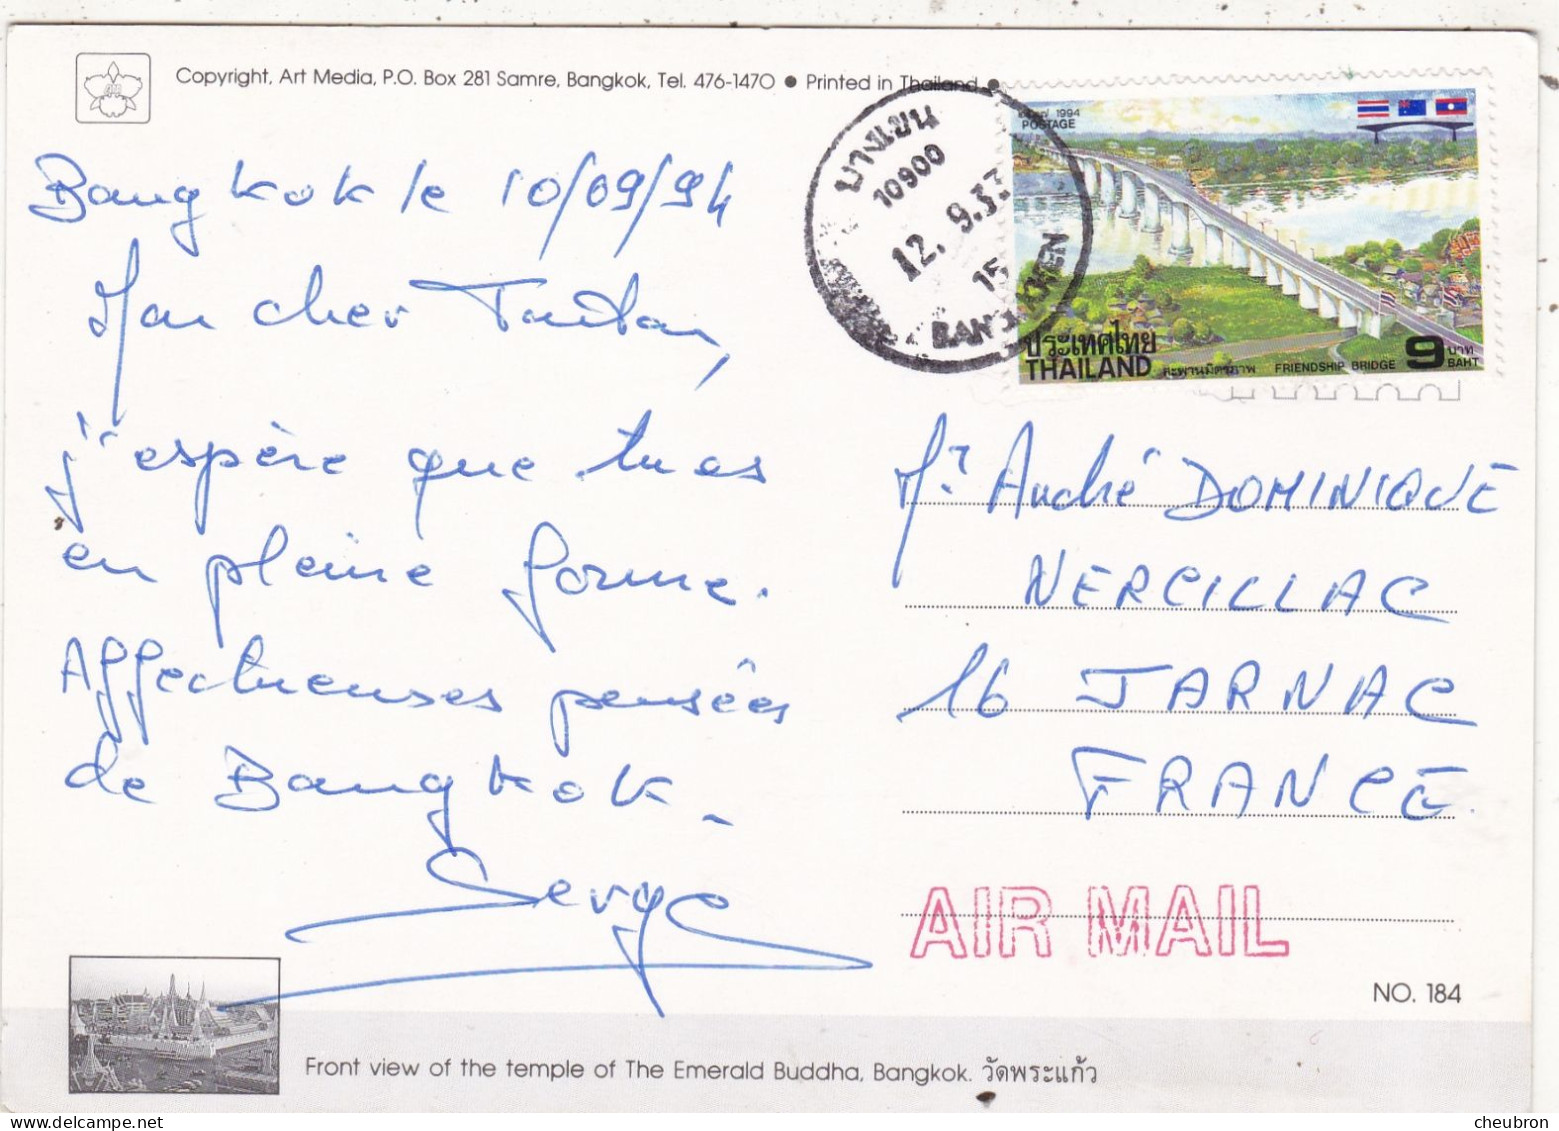 Copyright, Art Media, P.O. Box 281 Samre, Bangkok, Tel. 476-1470 ● Printed in Thailand ●
Bangkok le 10/09/94
Mon cher Tonton,
j'espère que tu es
en pleine forme.
Affectueuses pensées
de Bangkok.
Serge
บางเขน
10900
12. 9.37
15
BANG KHEN
1994
POSTAGE
ประเทศไทย
THAILAND
สะพานมิตรภาพ FRIENDSHIP BRIDGE
9 บาท
BAHT
Mr André DOMINIQUE
NERCILLAC
16 JARNAC
FRANCE.
AIR MAIL
NO. 184
Front view of the temple of The Emerald Buddha, Bangkok. วัดพระแก้ว
cheubron